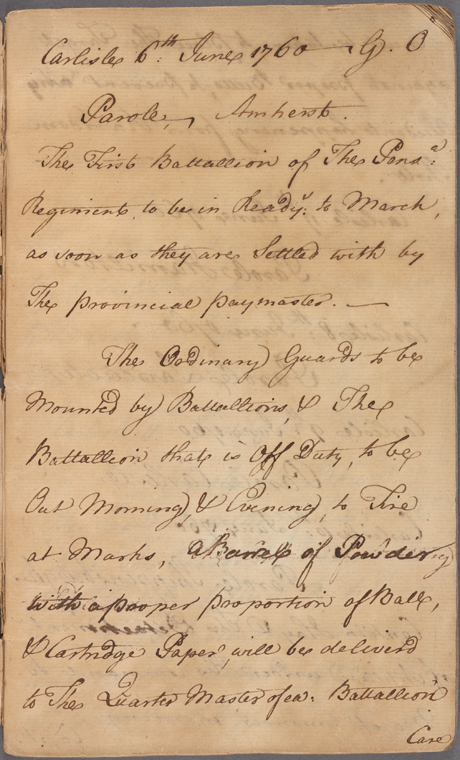 Carlisle 6th: June 1760 — G. O
Parole, Amherst.
The First Battallion of The Pensa:
Regiment, to be in Ready: to March,
as soon as they are Settled with by
The provincial paymaster. —
The Ordinary Guards to be
Mounted by Battallions, & The
Battallion that is Off Duty, to be
Out Morning, & Evening, to Fire
at Marks, a Barrel of Powder,
with a proper proportion of Ball,
& Cartridge Paper, will be deliverd
to The Quarter Master of ea: Battallion
Care